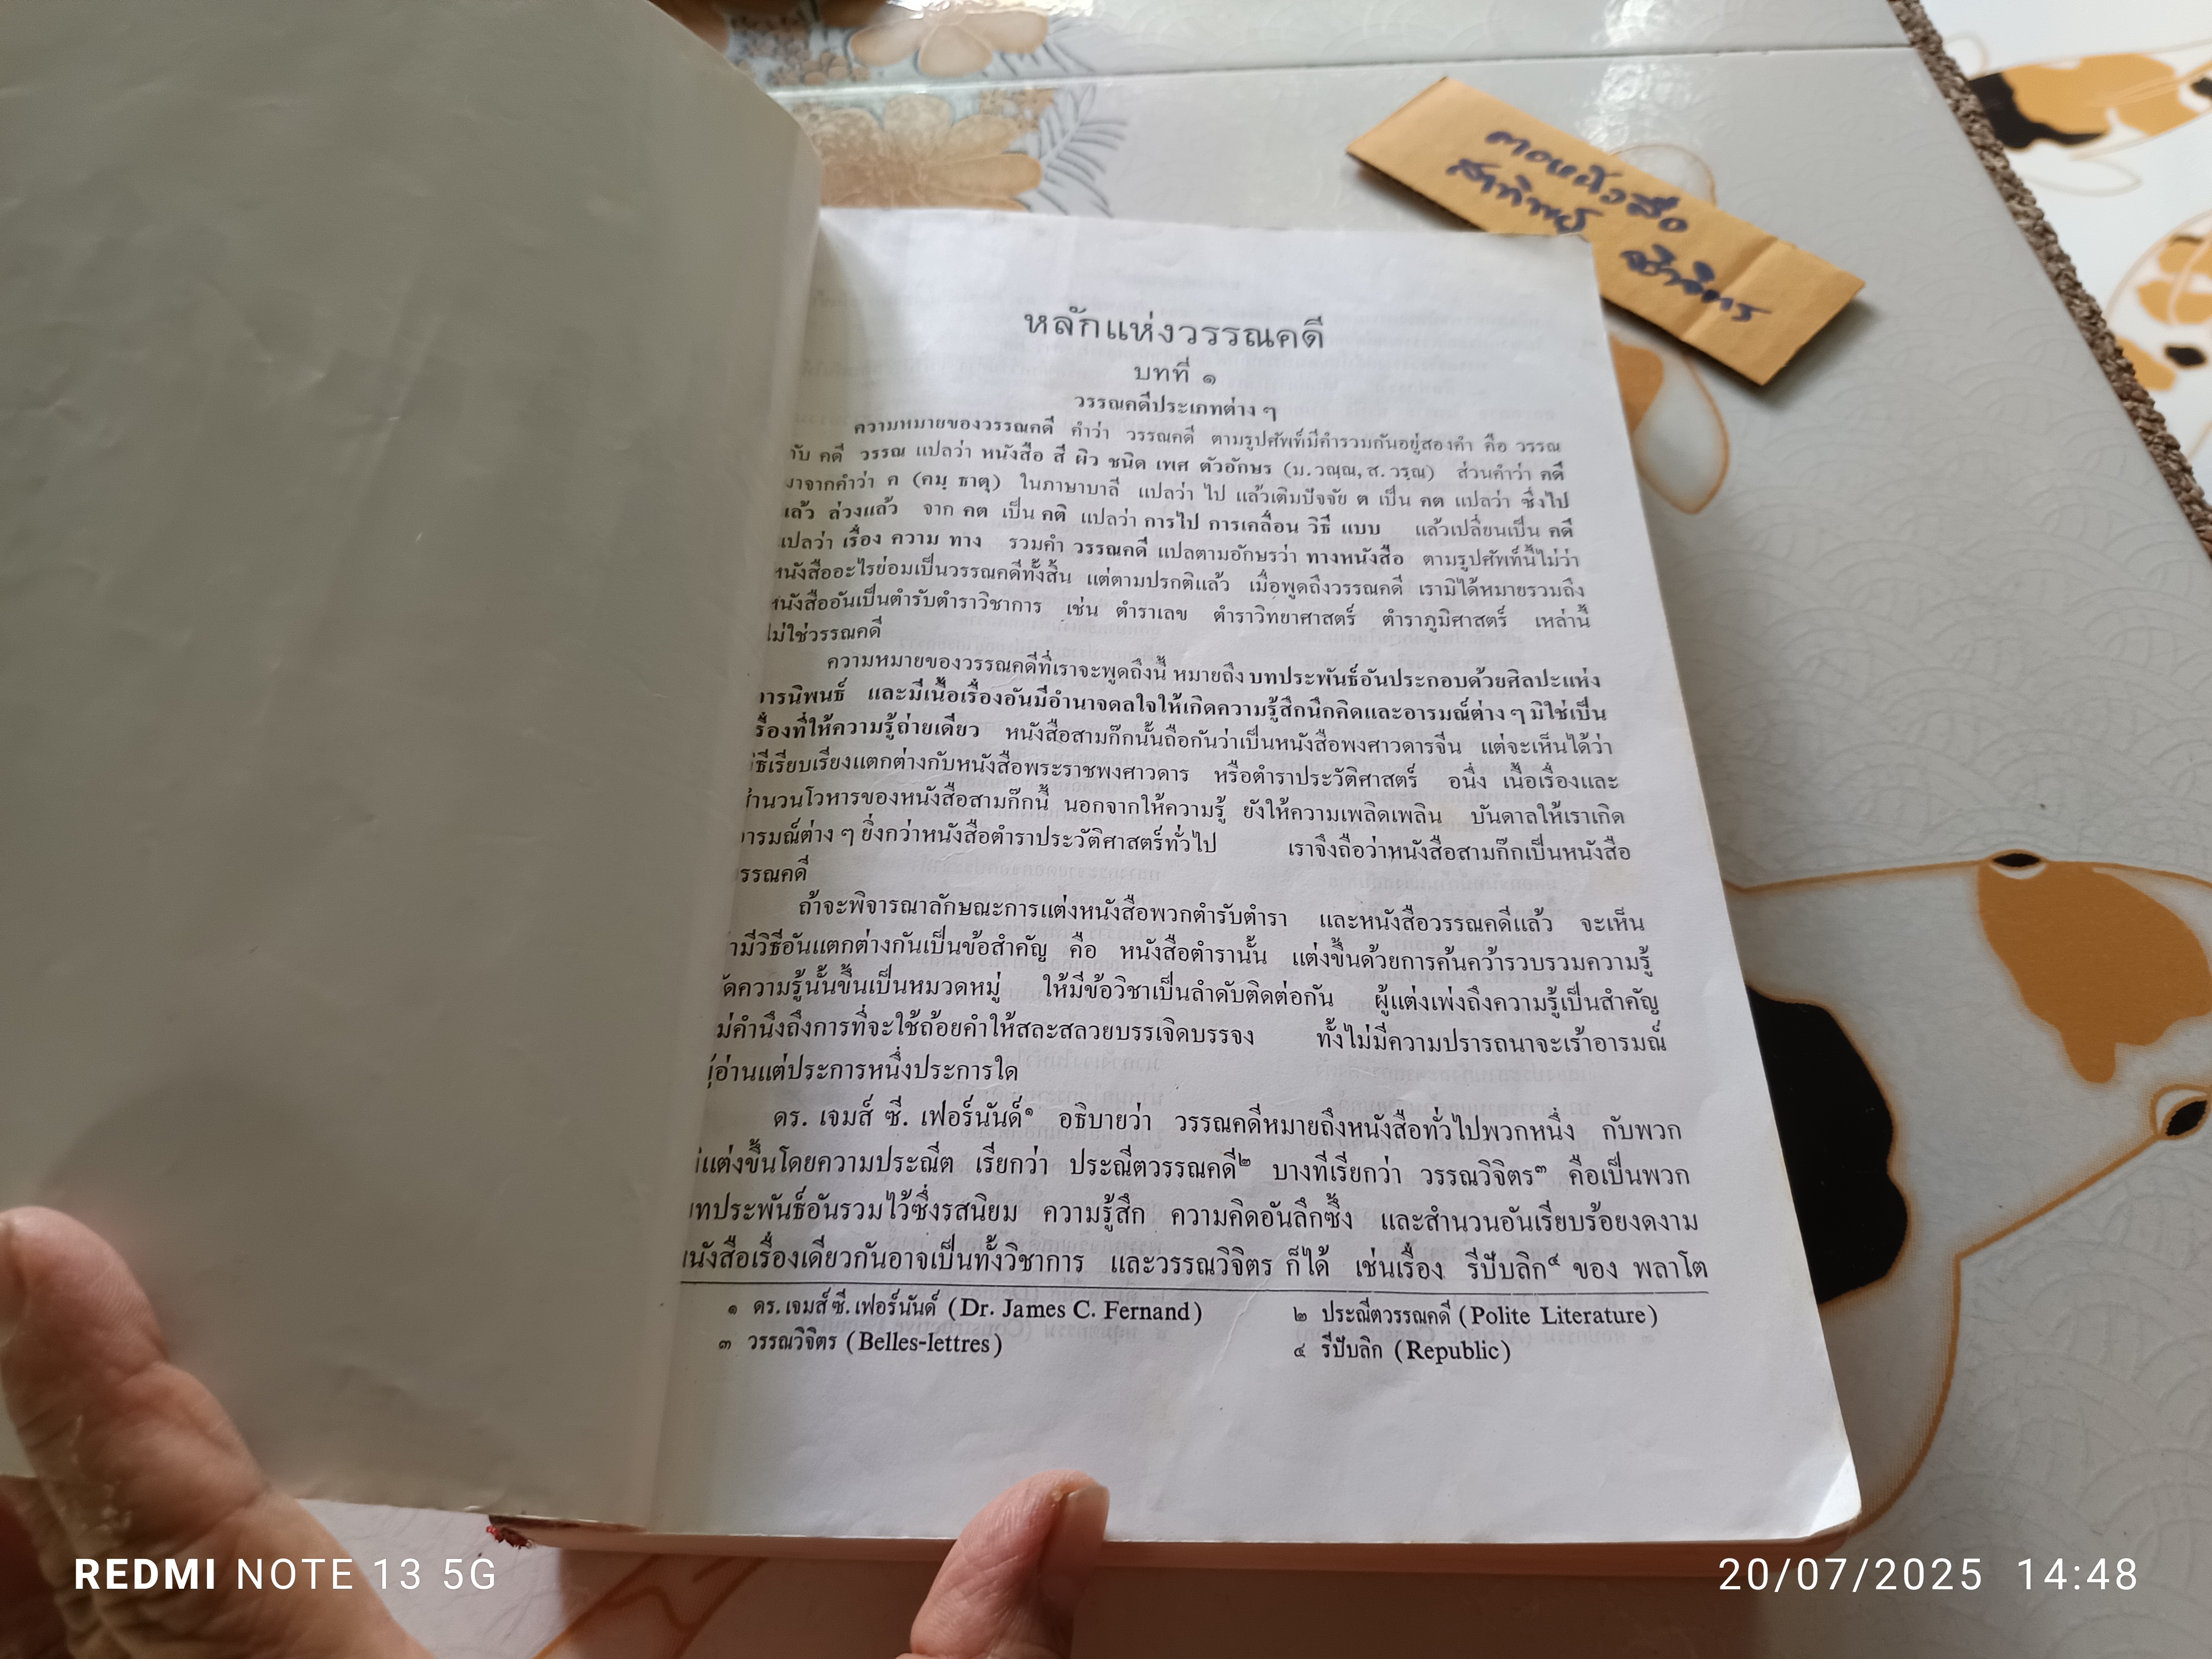 หลักแห่งวรรณคดี
บทที่ ๑
วรรณคดีประเภทต่าง ๆ
ความหมายของวรรณคดี คำว่า วรรณคดี ตามรูปศัพท์มีคำรวมกันอยู่สองคำ คือ วรรณ
กับ คดี วรรณ แปลว่า หนังสือ สี ผิว ชนิด เพศ ตัวอักษร (ม. วณฺณ, ส. วรฺณ) ส่วนคำว่า คดี
มาจากคำว่า ค (คมฺ ธาตุ) ในภาษาบาลี แปลว่า ไป แล้วเติมปัจจัย ต เป็น คต แปลว่า ซึ่งไป
แล้ว ล่วงแล้ว จาก คต เป็น คติ แปลว่า การไป การเคลื่อน วิธี แบบ แล้วเปลี่ยนเป็น คดี
แปลว่า เรื่อง ความ ทาง รวมคำ วรรณคดี แปลตามอักษรว่า ทางหนังสือ ตามรูปศัพท์นี้ไม่ว่า
หนังสืออะไรย่อมเป็นวรรณคดีทั้งสิ้น แต่ตามปรกติแล้ว เมื่อพูดถึงวรรณคดี เรามิได้หมายรวมถึง
หนังสืออันเป็นตำรับตำราวิชาการ เช่น ตำราเลข ตำราวิทยาศาสตร์ ตำราภูมิศาสตร์ เหล่านี้
ไม่ใช่วรรณคดี
ความหมายของวรรณคดีที่เราจะพูดถึงนี้ หมายถึง บทประพันธ์อันประกอบด้วยศิลปะแห่ง
การนิพนธ์ และมีเนื้อเรื่องอันมีอำนาจดลใจให้เกิดความรู้สึกนึกคิดและอารมณ์ต่าง ๆ มิใช่เป็น
เรื่องที่ให้ความรู้ถ่ายเดียว หนังสือสามก๊กนั้นถือกันว่าเป็นหนังสือพงศาวดารจีน แต่จะเห็นได้ว่า
วิธีเรียบเรียงแตกต่างกับหนังสือพระราชพงศาวดาร หรือตำราประวัติศาสตร์ อนึ่ง เนื้อเรื่องและ
สำนวนโวหารของหนังสือสามก๊กนี้ นอกจากให้ความรู้ ยังให้ความเพลิดเพลิน บันดาลให้เราเกิด
อารมณ์ต่าง ๆ ยิ่งกว่าหนังสือตำราประวัติศาสตร์ทั่วไป เราจึงถือว่าหนังสือสามก๊กเป็นหนังสือ
วรรณคดี
ถ้าจะพิจารณาลักษณะการแต่งหนังสือพวกตำรับตำรา และหนังสือวรรณคดีแล้ว จะเห็น
ว่ามีวิธีอันแตกต่างกันเป็นข้อสำคัญ คือ หนังสือตำรานั้น แต่งขึ้นด้วยการค้นคว้ารวบรวมความรู้
จัดความรู้นั้นขึ้นเป็นหมวดหมู่ ให้มีข้อวิชาเป็นลำดับติดต่อกัน ผู้แต่งเพ่งถึงความรู้เป็นสำคัญ
ไม่คำนึงถึงการที่จะใช้ถ้อยคำให้สละสลวยบรรเจิดบรรจง ทั้งไม่มีความปรารถนาจะเร้าอารมณ์
ผู้อ่านแต่ประการหนึ่งประการใด
ดร. เจมส์ ซี. เฟอร์นันด์๑ อธิบายว่า วรรณคดีหมายถึงหนังสือทั่วไปพวกหนึ่ง กับพวก
ที่แต่งขึ้นโดยความประณีต เรียกว่า ประณีตวรรณคดี๒ บางทีเรียกว่า วรรณวิจิตร๓ คือเป็นพวก
บทประพันธ์อันรวมไว้ซึ่งรสนิยม ความรู้สึก ความคิดอันลึกซึ้ง และสำนวนอันเรียบร้อยงดงาม
หนังสือเรื่องเดียวกันอาจเป็นทั้งวิชาการ และวรรณวิจิตร ก็ได้ เช่นเรื่อง รีปับลิก๔ ของ พลาโต
๑ ดร. เจมส์ ซี. เฟอร์นันด์ (Dr. James C. Fernand) ๒ ประณีตวรรณคดี (Polite Literature)
๓ วรรณวิจิตร (Belles-lettres) ๔ รีปับลิก (Republic)
REDMI NOTE 13 5G
20/07/2025 14:48